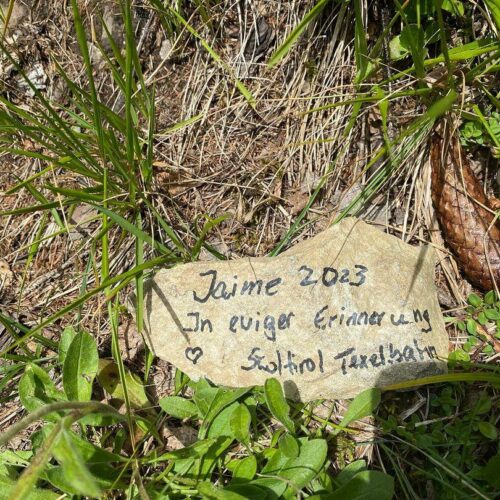 Jaime 2023
In eviger Erinnerung
♡ Südtirol Texelbahn